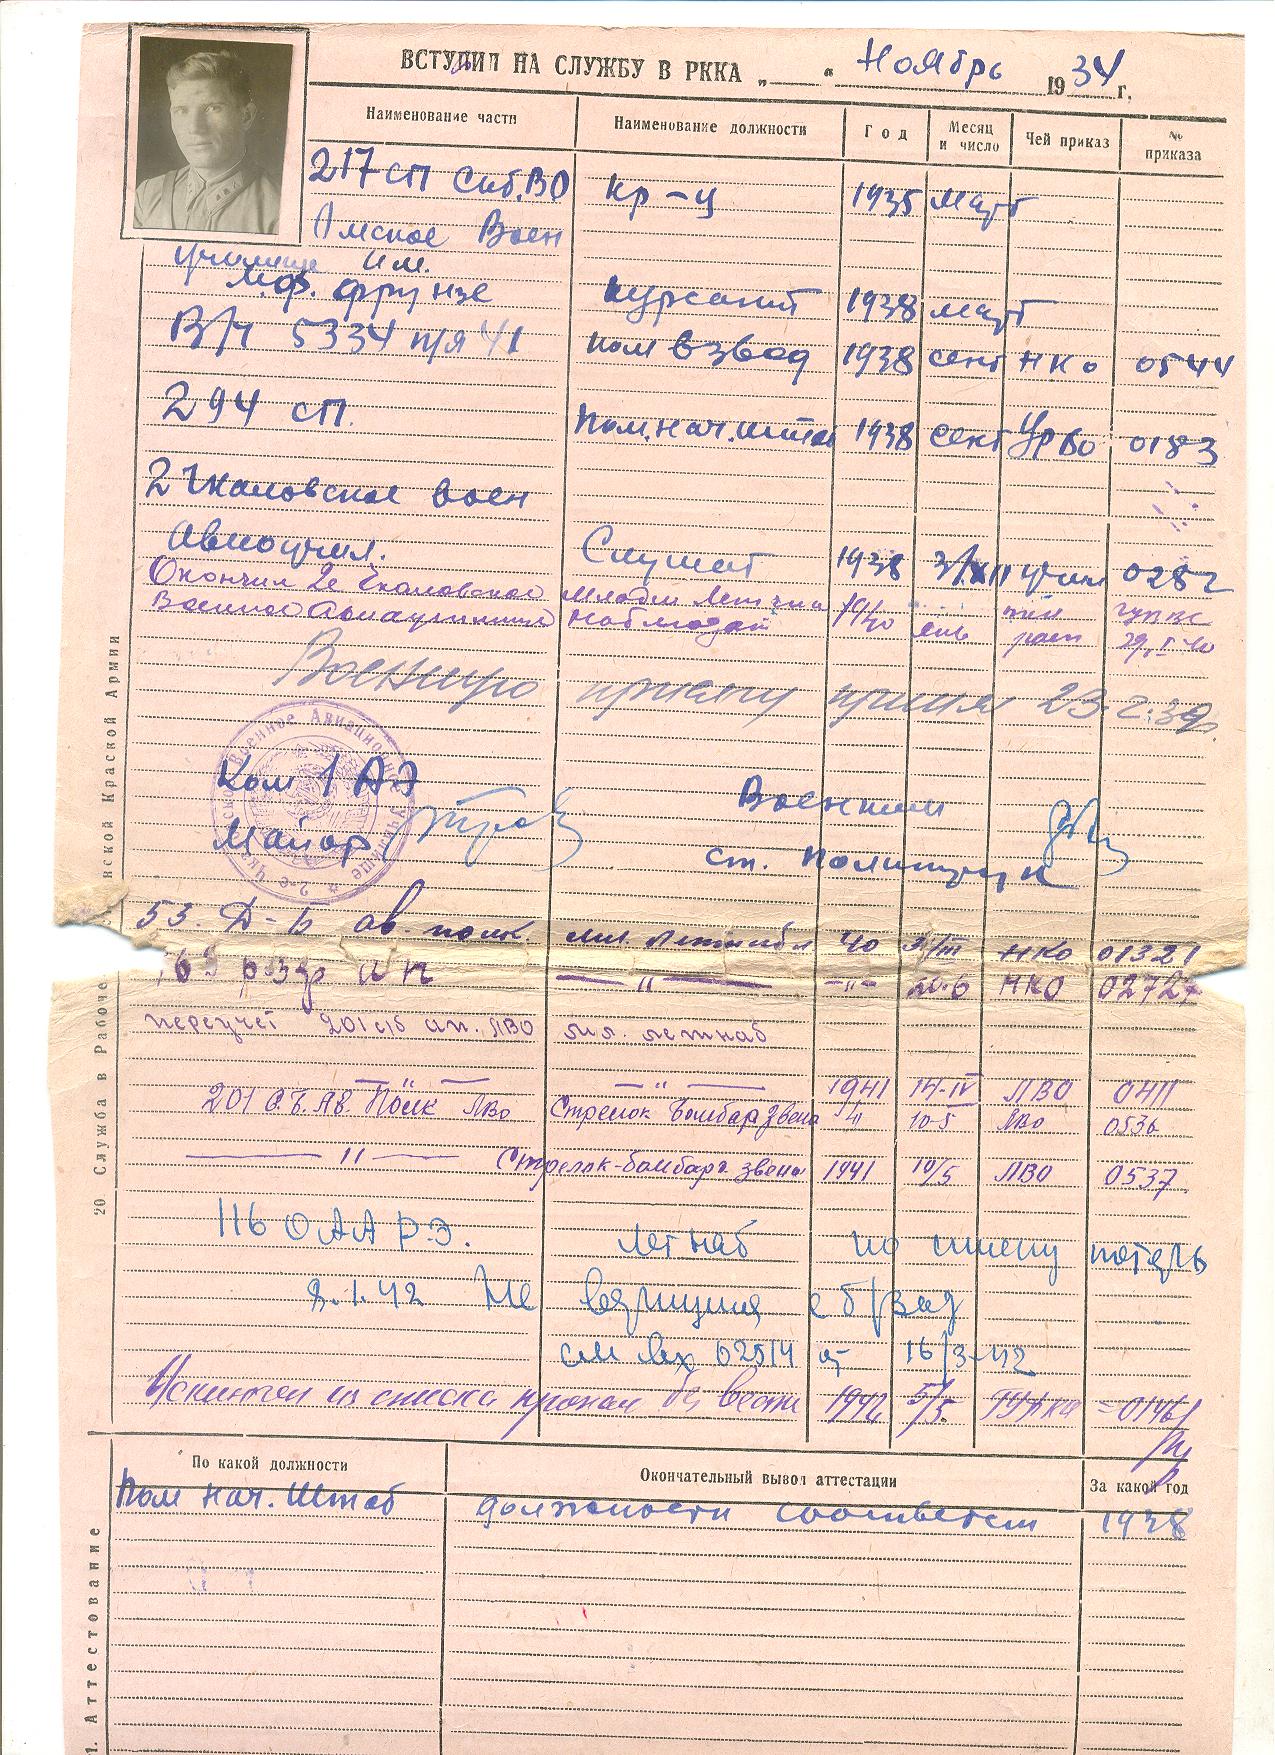 ВСТУПИЛ НА СЛУЖБУ В РККА „ “ Ноябрь 1934 г.
Наименование части Наименование должности Год Месяц и число Чей приказ № приказа
217 сп Сиб.ВО кр-ц 1935 март
Омское Воен
училище им.
М.Ф. Фрунзе курсант 1938 март
В/ч 5334 п/я 41 ком взвод 1938 сент НКО 0544
294 сп. Пом.нач.штаб 1938 сент УрВО 0183
2 Чкаловское воен
Авиоучил. Слушат 1938 3/XII учил 0282
Окончил 2е Чкаловское младш Летчик
Военное Авиаучилище наблюдат 1940 янв 29.I.40
Военную присягу принял 23.2.39г.
2-е Чкаловское Военное Авиационное Училище
Ком 1 АЭ Военком
Майор ст. Политрук
53. Д-Б ав. полк. мл. летнабл 40 НКО 01321
рззр ап — " — — " — 20.6 НКО 02727
переучет 201 с/б ап. ЛВО мл. летнаб
— " — — " — 1941 14-IV ЛВО 0411
201 С.Б. Ав. Полк ЛВО Стрелок Бомбард звена 41 10-5 ЛВО 0536
— " — Стрелок-бомбард звена 1941 10/5 ЛВО 0537
116 ОААРЭ. Летнаб по списку потерь
8.1.42 Не вернулся с б/зад
см Вх 02514 от 16/3-42
Исключен из списка пропал без вести 1942 5/5. ГУПКА 0146
20 Служба в Рабоче- нской Красной Армии
По какой должности Окончательный вывод аттестации За какой год
Пом нач. Штаб должности соответст 1938
1. Аттестование